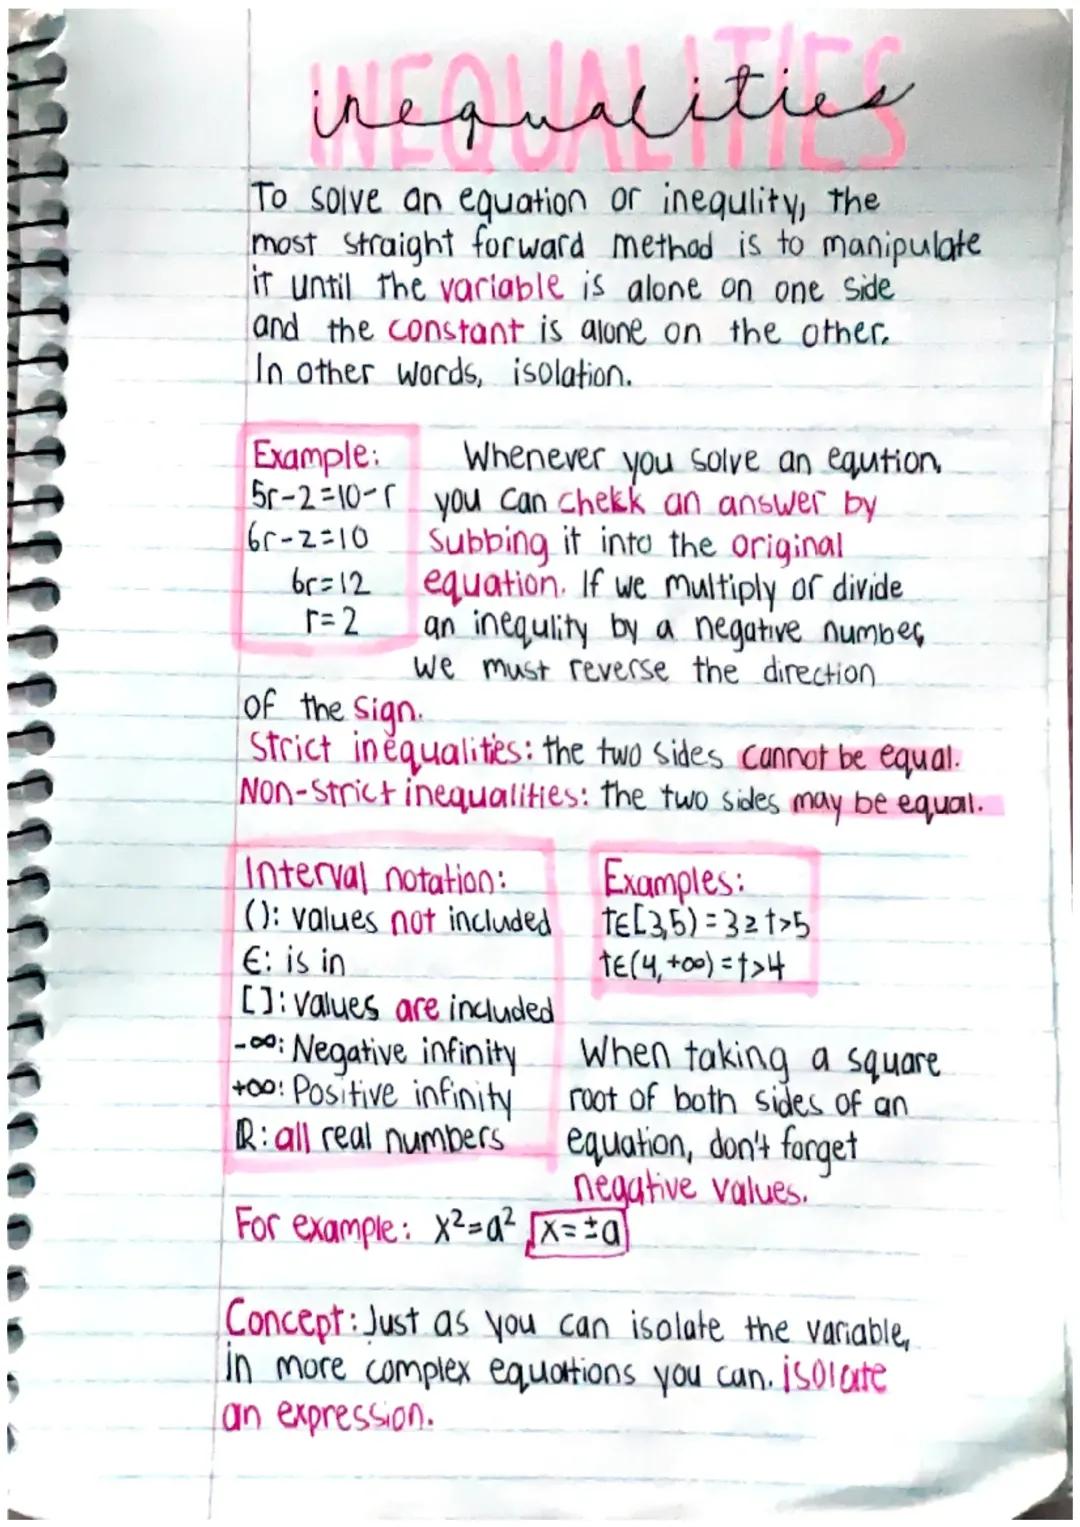 INEQUALITIES
inequalities
To solve an equation or inequlity, the
most straight forward method is to manipulate
it until the variable is alone on one side
and the constant is alone on the other.
In other words, isolation.
Example:
5r-2=10-r
6r-2=10
6r=12
r=2
Whenever you solve an eqution,
you can chekk an answer by
subbing it into the original
equation. If we multiply or divide
an inequlity by a negative number,
we must reverse the direction
of the sign.
Strict inequalities: the two sides cannot be equal.
Non-strict inequalities: the two sides may be equal.
Interval notation:
(): values not included
∈: is in
[]: values are included
-∞: Negative infinity
+∞: Positive infinity
ℝ: all real numbers
Examples:
t∈[3,5) = 3≥t>5
t∈(4,+∞) = t>4
When taking a square
root of both sides of an
equation, don't forget
negative values.
For example: x²=a² x=±a
Concept: Just as you can isolate the variable,
in more complex equations you can. isolate
an expression.